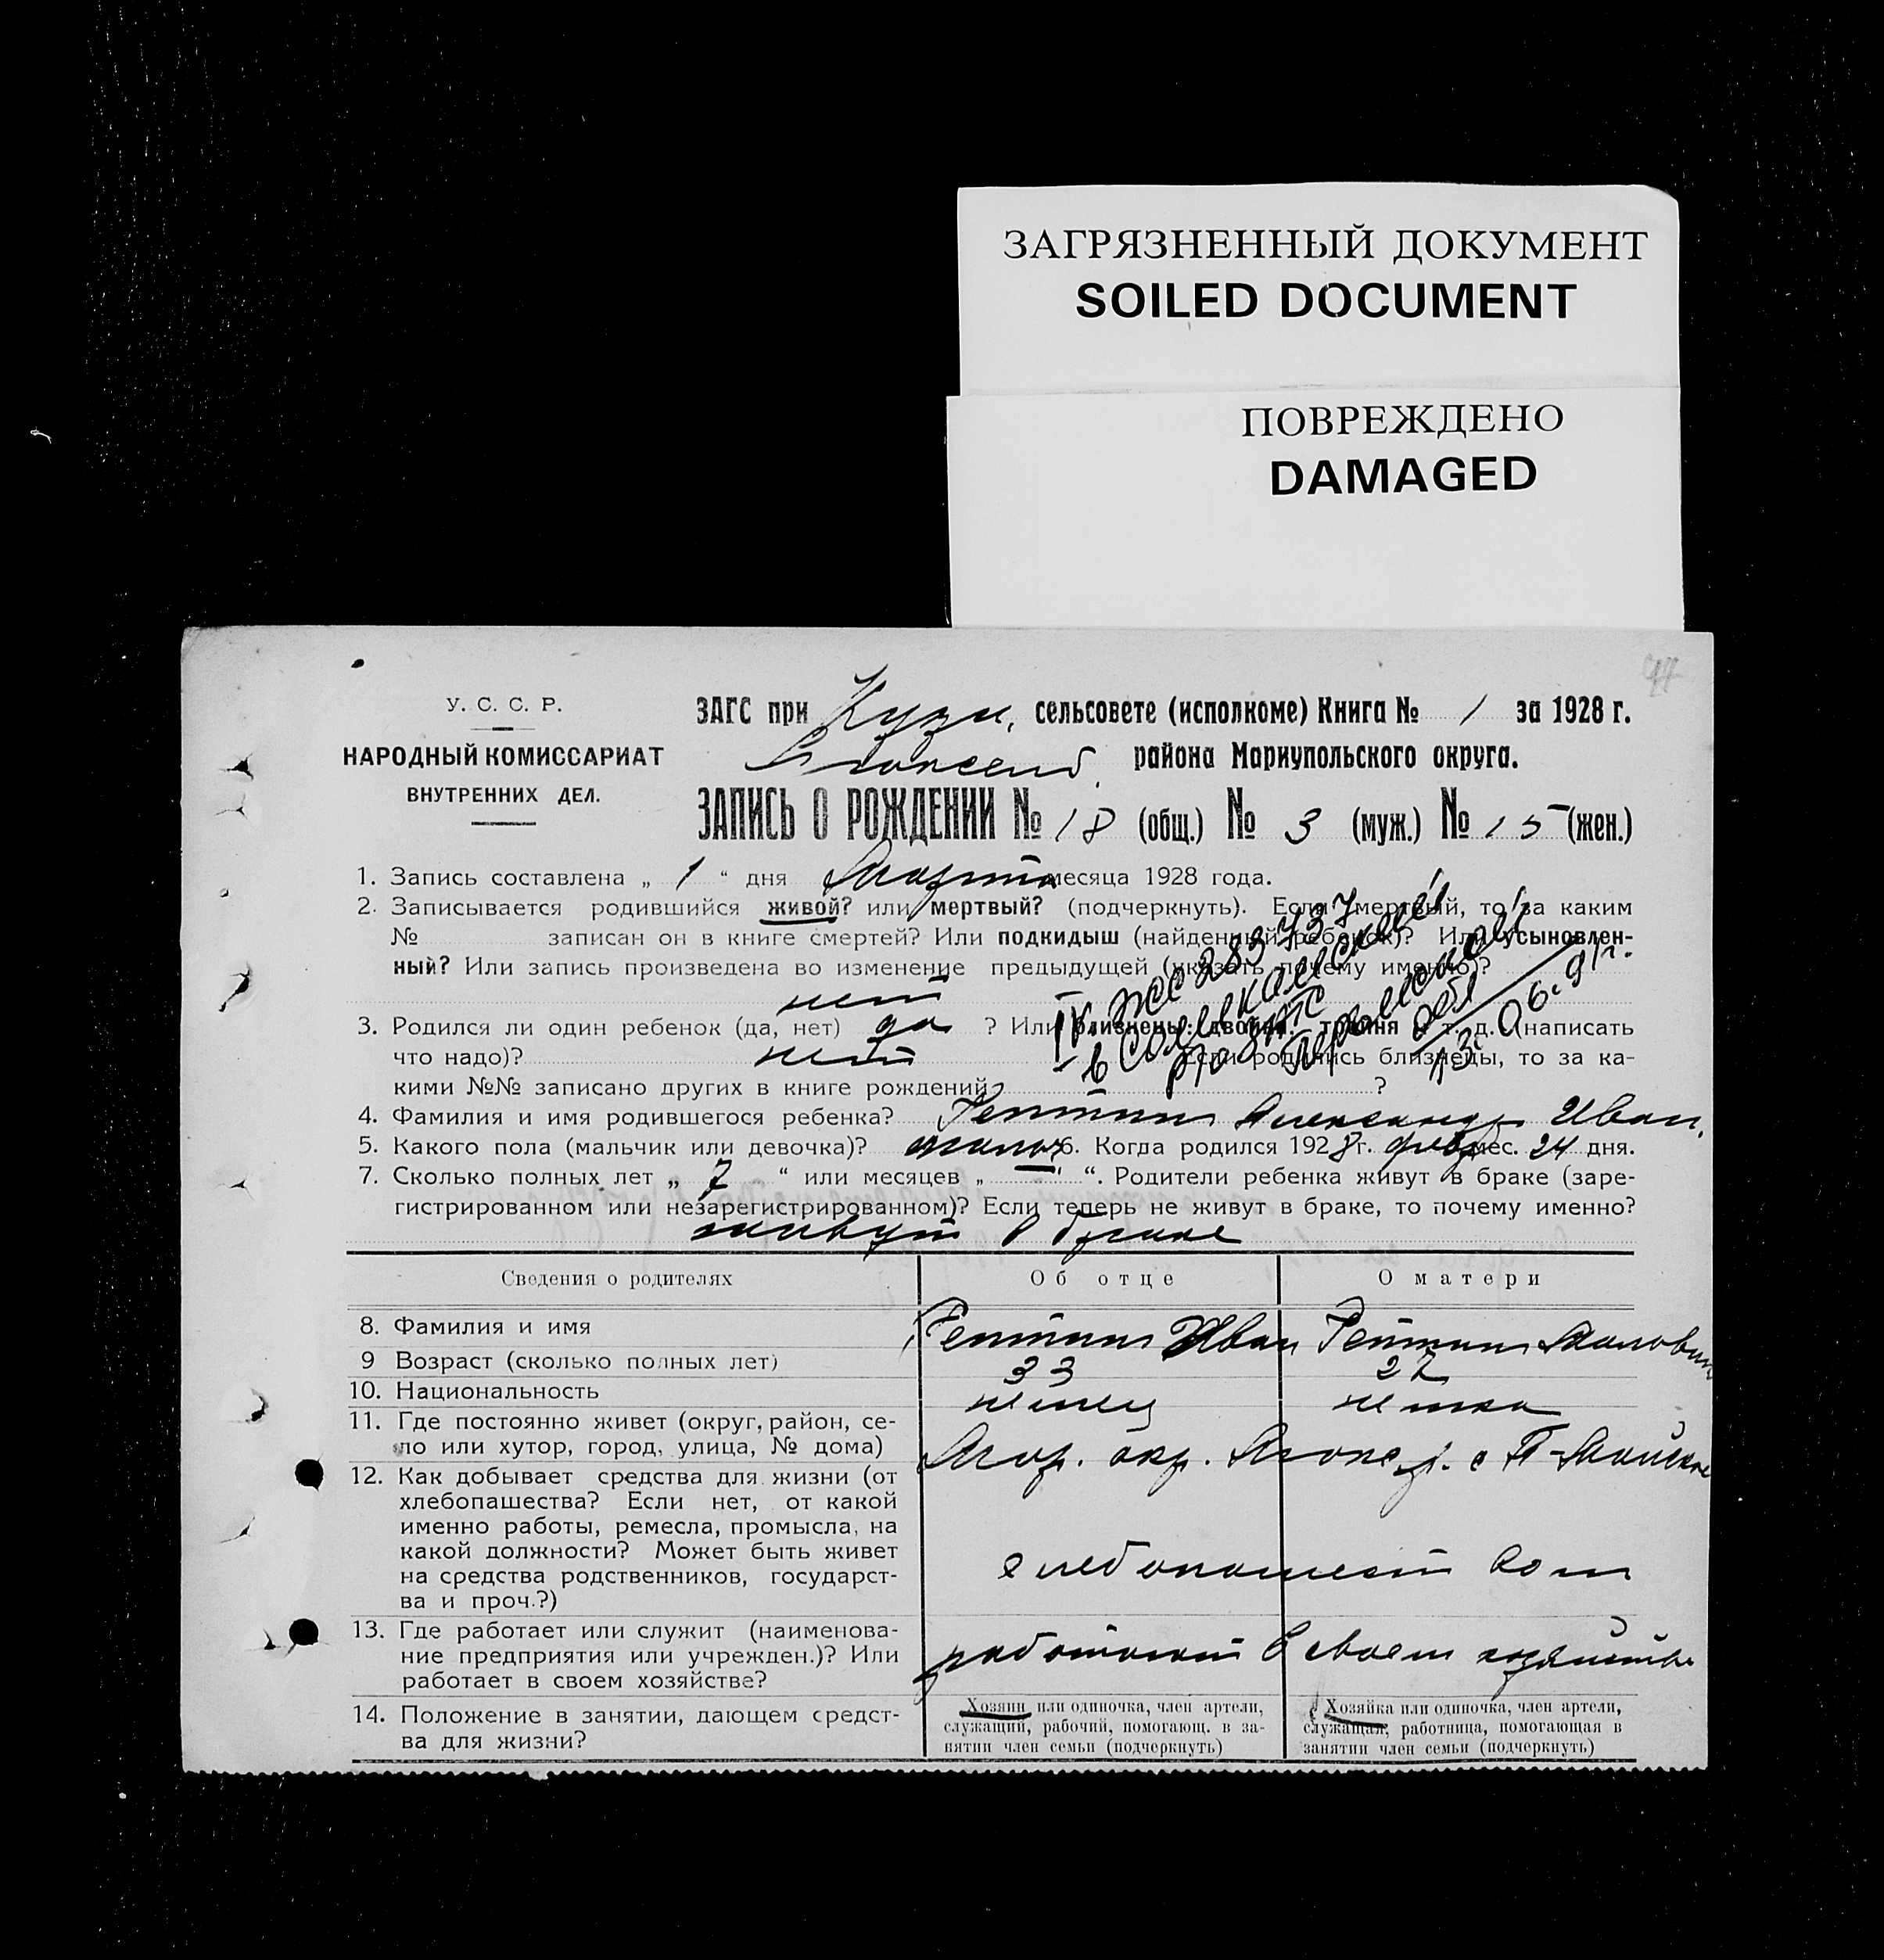 ЗАГРЯЗНЕННЫЙ ДОКУМЕНТ
SOILED DOCUMENT
ПОВРЕЖДЕНО
DAMAGED
У. С. С. Р.
НАРОДНЫЙ КОМИССАРИАТ
ВНУТРЕННИХ ДЕЛ.
ЗАГС при сельсовете (исполкоме) Книга № 1 за 1928 г.
района Мариупольского округа.
ЗАПИСЬ О РОЖДЕНИИ № 18 (общ.) № 3 (муж.) № 15 (жен.)
1. Запись составлена „ 1 “ дня Марта месяца 1928 года.
2. Записывается родившийся живой? или мертвый? (подчеркнуть). Если мертвый, то за каким
№ записан он в книге смертей? Или подкидыш (найденный ребенок)? Или усыновлен-
ный? Или запись произведена во изменение предыдущей (указать почему именно)?
нет
3. Родился ли один ребенок (да, нет) да ? Или близнецы: двойня, тройня и т. д. (написать
что надо)? нет Если родились близнецы, то за ка-
кими №№ записано других в книге рождений ?
4. Фамилия и имя родившегося ребенка? Александр Иван.
5. Какого пола (мальчик или девочка)? мальч 6. Когда родился 1928 г. февр мес. 24 дня.
7. Сколько полных лет „ 7 “ или месяцев „ — “. Родители ребенка живут в браке (заре-
гистрированном или незарегистрированном)? Если теперь не живут в браке, то почему именно?
живут в браке
Сведения о родителях Об отце О матери
8. Фамилия и имя Иван
9 Возраст (сколько полных лет) 33 27
10. Национальность немец немка
11. Где постоянно живет (округ, район, се-
ло или хутор, город, улица, № дома) Мар. окр.
12. Как добывает средства для жизни (от
хлебопашества? Если нет, от какой
именно работы, ремесла, промысла, на
какой должности? Может быть живет
на средства родственников, государст-
ва и проч.?)
хлебопашеством
13. Где работает или служит (наименова-
ние предприятия или учрежден.)? Или
работает в своем хозяйстве?
работают в своем хозяйстве
14. Положение в занятии, дающем средст-
ва для жизни?
Хозяин или одиночка, член артели,
служащий, рабочий, помогающ. в за-
нятии член семьи (подчеркнуть)
Хозяйка или одиночка, член артели,
служащая, работница, помогающая в
занятии член семьи (подчеркнуть)